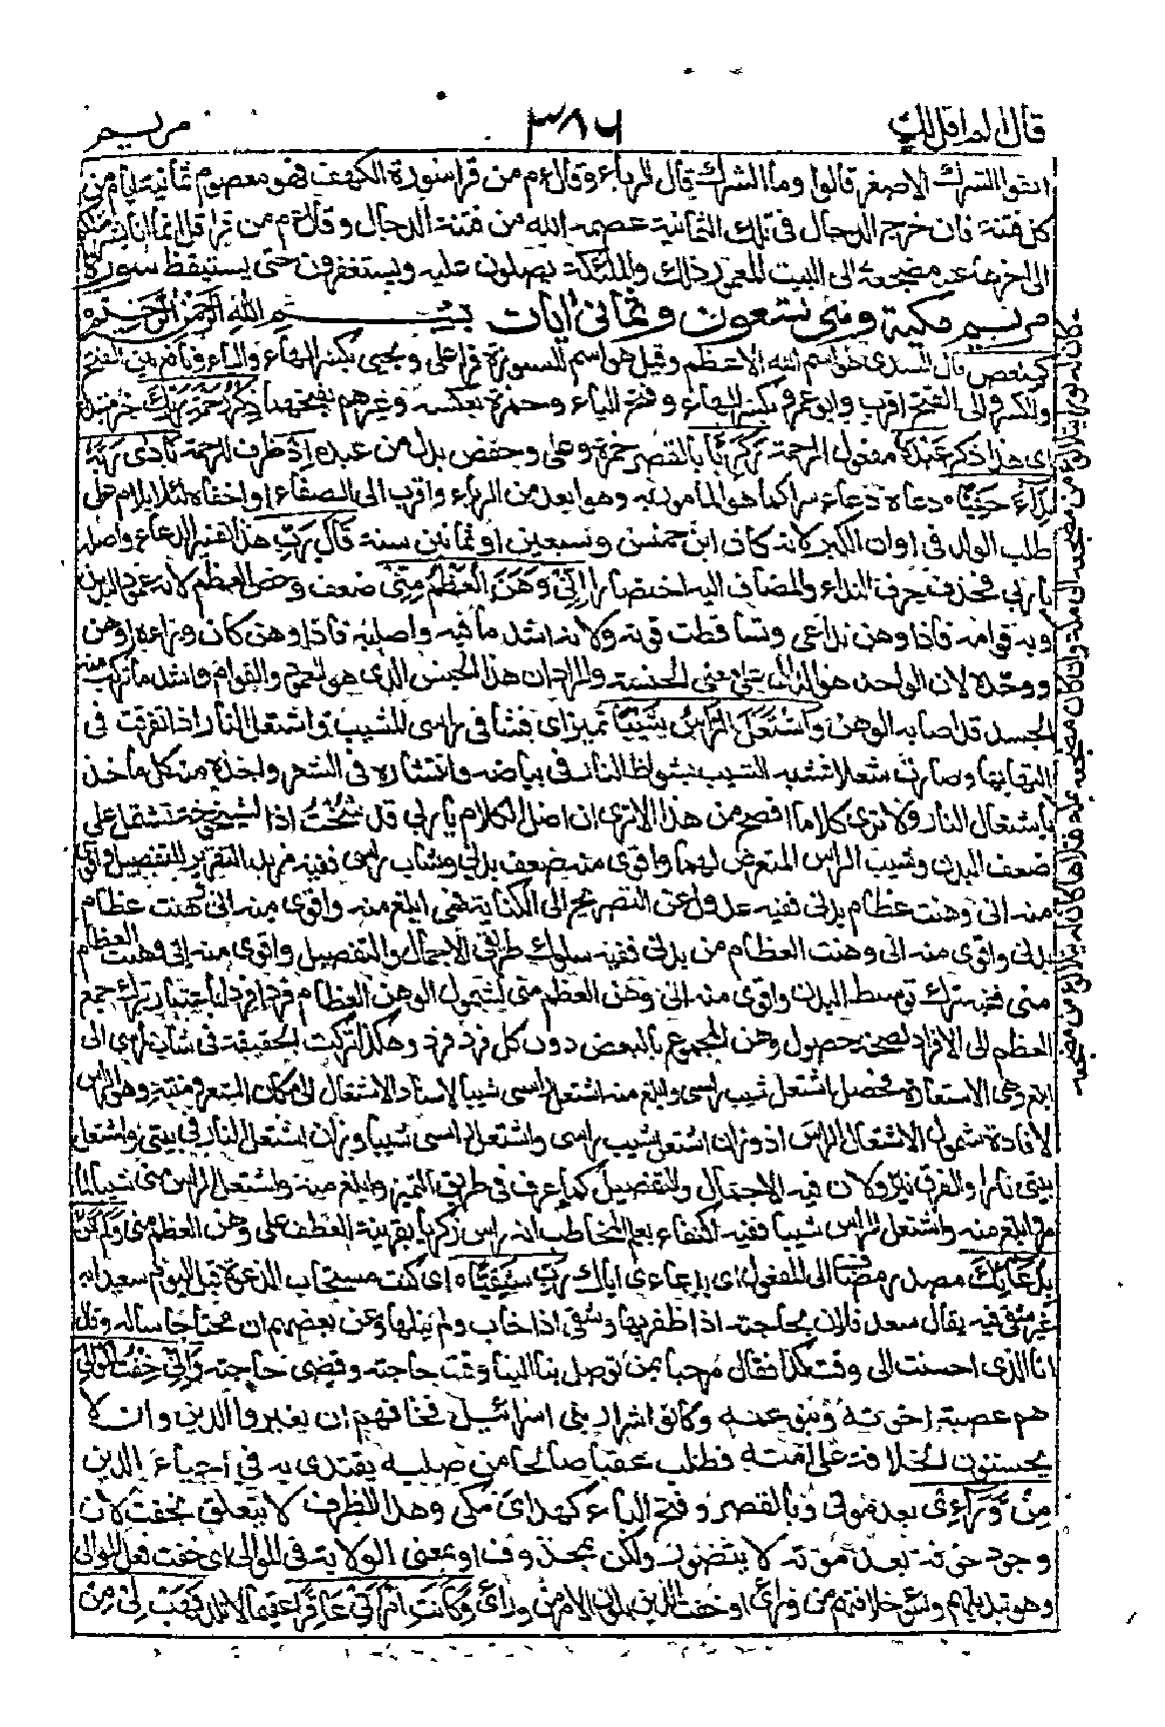 قال الم اقل لك ٣٨٦ مريم
اتقوا الشرك الاصغر قالوا وما الشرك قال الرياء وقال ءم من قرا سورة الكهف فهو معصوم ثمانية ايام من
كل فتنة فان خرج الدجال فى تلك الثمانية عصمه الله من فتنة الدجال وقال ءم من قرا قل انما انا بشر مثلكم
الى اخرها عند مضجعه الى البيت المعمور ذلك والملئكة يصلون عليه ويستغفرون حتى يستيقظ سورة
مريم مكية وهى تسعون وثمانى ايات بسم الله الرحمن الرحيم
كهيعص قال السدى هو اسم الله الاعظم وقيل هو اسم للسورة قرا على ويحيى بكسر الهاء والياء ونافع بين الفتح
والكسر والى الفتح اقرب وابو عمرو بكسر الهاء وفتح الياء وحمزة بعكسه وغيرهم بفتحهما ذكر رحمة ربك خبر مبتدا
اى هذا ذكر عبده مفعول الرحمة زكريا بالقصر حمزة وعلى وحفص بدل من عبده اذ ظرف للرحمة نادى ربه
نداء خفيا دعاه دعاء سرا كما هو المامور به وهو ابعد من الرياء واقرب الى الصفاء او اخفاه لئلا يلام على
طلب الولد فى اوان الكبر لانه كان ابن خمس وسبعين او ثمانين سنة قال رب هذا تفسير الدعاء واصله
يا ربى فحذف حرف النداء والمضاف اليه اختصارا انى وهن العظم منى ضعف وخص العظم لانه عمود البدن
وبه قوامه فاذا وهن تداعى وتساقطت قوته ولانه اشد ما فيه واصلبه فاذا وهن كان وراءه اوهن
ووحده لان الواحد هو الدال على معنى الجنسية والمراد ان هذا الجنس الذى هو العمود والقوام واشد ما تركب منه
الجسد قد اصابه الوهن واشتعل الراس شيبا تميز اى فشا فى راسى الشيب واشتعل النار اذا تفرقت فى
التهابها وصارت شعلا فشبه الشيب بشواظ النار فى بياضه وانتشاره فى الشعر واخذه منه كل ماخذ
باشتعال النار ولا ترى كلاما افصح من هذا الا ترى ان اصل الكلام يا ربى قد شخت اذ الشيخوخة تشتمل على
ضعف البدن وشيب الراس المتعرض لهما واقوى منه ضعف بدنى وشاب راسى ففيه مزيد التقرير للتفصيل واقوى
منه انى وهنت عظام بدنى ففيه عدول عن التصريح الى الكناية فهى ابلغ منه واقوى منه انى وهنت عظام
بدنى واقوى منه انى وهنت العظام من بدنى ففيه سلوك طريقى الاجمال والتفصيل واقوى منه انى وهنت العظام
منى ففيه ترك توسط البدن واقوى منه انى وهن العظم منى لشمول الوهن العظام فردا فردا باعتبار ترك جمع
العظم الى الافراد لصحة حصول وهن المجموع بالبعض دون كل فرد فرد وهكذا تركت الحقيقة فى شاب راسى الى
ابلغ وهى الاستعارة فحصل اشتعل شيب راسى وابلغ منه اشتعل راسى شيبا لاسناد الاشتعال الى مكان الشعر ومنبته وهو الراس
لافادة شمول الاشتعال الراس اذ وزان اشتعل شيب راسى واشتعل راسى شيبا وزان اشتعل النار فى بيتى واشتعل
بيتى نارا والفرق نير ولان فيه الاجمال والتفصيل كما عرف فى طريق التميز وابلغ منه واشتعل الراس منى شيبا لما
مر وابلغ منه واشتعل الراس شيبا ففيه اكتفاء بعلم المخاطب انه راس زكريا بقرينة العطف على وهن العظم منى ولم اكن
بدعائك مصدر مضاف الى المفعول اى بدعاءى اياك رب شقيا اى كنت مستجاب الدعوة قبل اليوم سعيدا به
غير شقى فيه يقال سعد فلان بحاجته اذا ظفر بها وشقى اذا خاب ولم ينلها وعن بعضهم ان محتاجا ساله وقال
انا الذى احسنت الى وقت كذا فقال مرحبا بمن توصل بنا الينا وقت حاجته وقضى حاجته وانى خفت الموالى
هم عصبته اخوته وبنو عمه وكانوا شرار بنى اسرائيل فخافهم ان يغيروا الدين وان لا
يحسنون الخلافة على امته فطلب عقبا صالحا من صلبه يقتدى به فى احياء الدين
من وراءى بعد موتى وبالقصر وفتح الياء كهداى مكى وهذا الظرف لا يتعلق بخفت لان
وجود خوفه بعد موته لا يتصور ولكن بمحذوف او بمعنى الولاية فى الموالى اى خفت فعل الموالى
وهو تبديلهم وسوء خلافتهم من وراءى او خفت الذين يلون الامر من وراءى وكانت امراتى عاقرا عقيما لا تلد فهب لى من
كان له نور يتلالؤ من مضجعه الى مكة وان كان مضجعه عند قراها كان له يتلالؤ من مضجعه